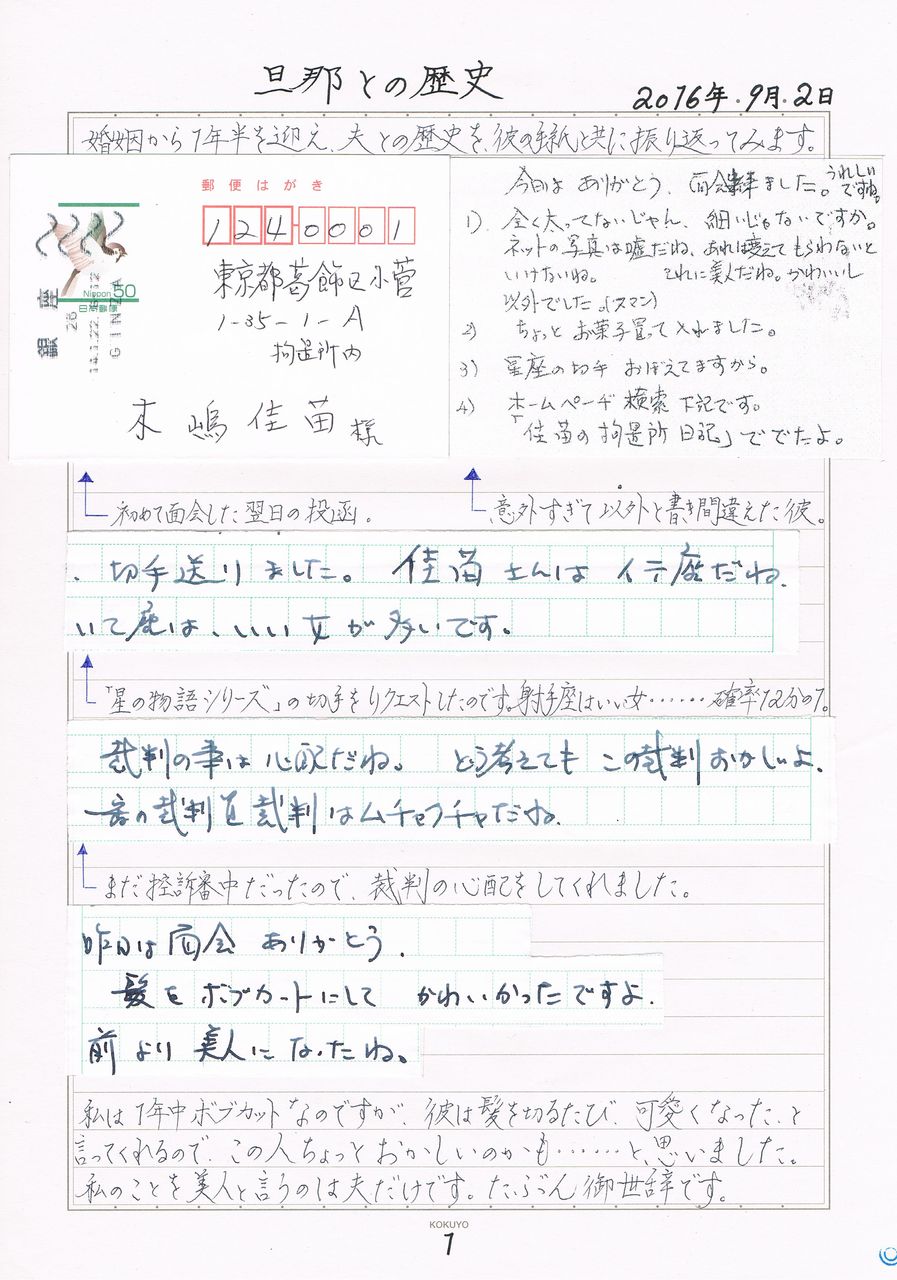 旦那との歴史
2016年.9月.2日
婚姻から1年半を迎え、夫との歴史を、彼の手紙と共に振り返ってみます。
郵便はがき
1240001
東京都葛飾区小菅
1-35-1-A
拘置所内
木嶋佳苗様
Nippon 50
日本郵便
銀座
GINZA
今日は ありがとう、面会出来ました。うれしいですね。
1) 全く太ってないじゃん、細いじゃないですか。
ネットの写真は嘘だね、あれは変えてもらわないと
いけないね。 それに美人だね。かわいいし
以外でした。(スマン)
2) ちょっと お菓子買って入れました。
3) 星座の切手 おぼえてますから。
4) ホームページ 検索 下記です。
「佳苗の拘置所日記」ででたよ。
初めて面会した翌日の投函。
意外すぎて以外と書き間違えた彼。
、切手送りました。 佳苗さんは イテ座だね、
いて座は、いい女が多いです。
「星の物語シリーズ」の切手をリクエストしたのです。射手座はいい女……確率12分の1。
裁判の事は心配だね。 どう考えても この裁判おかしいよ、
一審の裁判員裁判はムチャクチャだね。
まだ控訴審中だったので、裁判の心配をしてくれました。
昨日は面会 ありがとう、
髪をボブカートにして かわいかったですよ、
前より 美人になったね。
私は1年中ボブカットなのですが、彼は髪を切るたび、可愛くなった、と
言ってくれるので、この人ちょっとおかしいのかも……と思いました。
私のことを美人と言うのは夫だけです。たぶん御世辞です。
KOKUYO
1